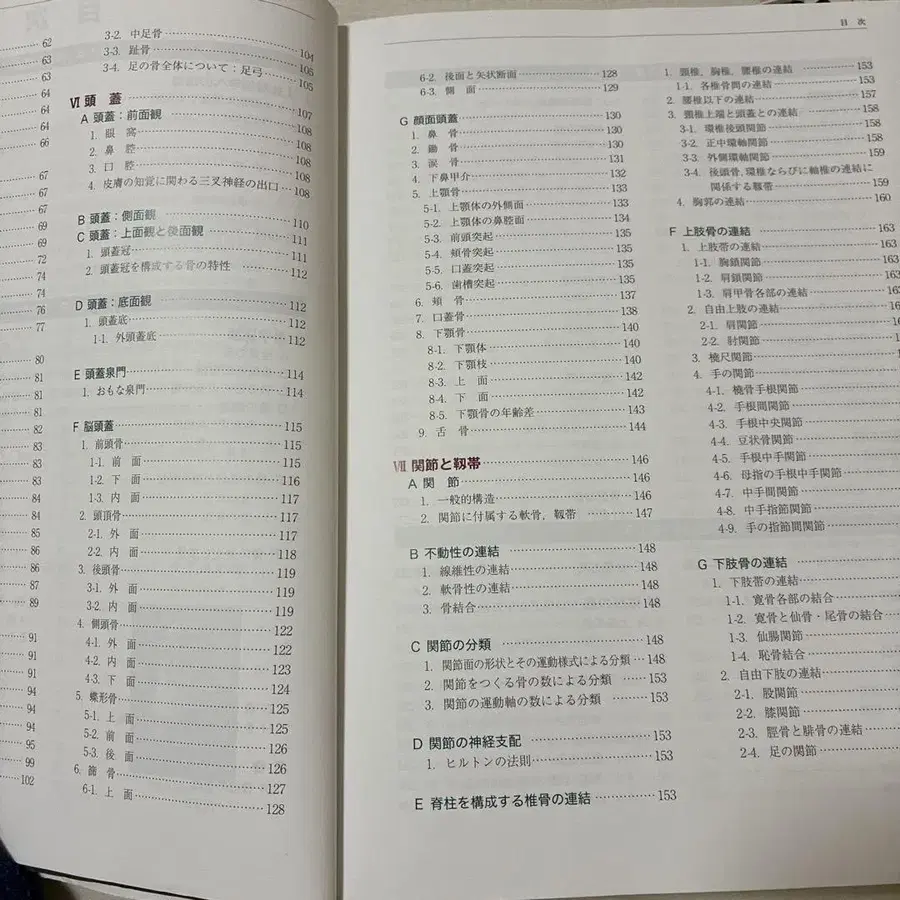 62
63
63
64
64
64
66
67
67
69
69
72
74
74
76
77
80
81
81
81
82
83
83
84
85
86
87
89
91
91
91
94
94
94
95
99
102
3-2. 中足骨 104
3-3. 趾骨 105
3-4. 足の骨全体について:足弓 105
Ⅵ 頭 蓋 107
A 頭蓋:前面観 108
1. 眼 窩 108
2. 鼻 腔 108
3. 口 腔 108
4. 皮膚の知覚に関わる三叉神経の出口 108
B 頭蓋:側面観 110
C 頭蓋:上面観と後面観 111
1. 頭蓋冠 111
2. 頭蓋冠を構成する骨の特性 112
D 頭蓋:底面観 112
1. 頭蓋底 112
1-1. 外頭蓋底 112
E 頭蓋泉門 114
1. おもな泉門 114
F 脳頭蓋 115
1. 前頭骨 115
1-1. 前 面 115
1-2. 下 面 116
1-3. 内 面 117
2. 頭頂骨 117
2-1. 外 面 117
2-2. 内 面 118
3. 後頭骨 119
3-1. 外 面 119
3-2. 内 面 119
4. 側頭骨 122
4-1. 外 面 122
4-2. 内 面 123
4-3. 下 面 124
5. 蝶形骨 125
5-1. 上 面 125
5-2. 前 面 126
5-3. 後 面 126
6. 篩 骨 127
6-1. 上 面 128
目 次
6-2. 後面と矢状断面 128
6-3. 側 面 129
G 顔面頭蓋 130
1. 鼻 骨 130
2. 鋤 骨 130
3. 涙 骨 131
4. 下鼻甲介 132
5. 上顎骨 133
5-1. 上顎体の外側面 133
5-2. 上顎体の鼻腔面 134
5-3. 前頭突起 135
5-4. 頬骨突起 135
5-5. 口蓋突起 135
5-6. 歯槽突起 135
6. 頬 骨 137
7. 口蓋骨 138
8. 下顎骨 140
8-1. 下顎体 140
8-2. 下顎枝 140
8-3. 上 面 142
8-4. 下 面 142
8-5. 下顎骨の年齢差 143
9. 舌 骨 144
Ⅶ 関節と靱帯 146
A 関 節 146
1. 一般的構造 146
2. 関節に付属する軟骨,靱帯 147
B 不動性の連結 148
1. 線維性の連結 148
2. 軟骨性の連結 148
3. 骨結合 148
C 関節の分類 148
1. 関節面の形状とその運動様式による分類 148
2. 関節をつくる骨の数による分類 153
3. 関節の運動軸の数による分類 153
D 関節の神経支配 153
1. ヒルトンの法則 153
E 脊柱を構成する椎骨の連結 153
1. 頸椎,胸椎,腰椎の連結 153
1-1. 各椎骨間の連結 153
2. 腰椎以下の連結 157
3. 頸椎上端と頭蓋との連結 158
3-1. 環椎後頭関節 158
3-2. 正中環軸関節 158
3-3. 外側環軸関節 159
3-4. 後頭骨,環椎ならびに軸椎の連結に
関係する靱帯 159
4. 胸郭の連結 160
F 上肢骨の連結 163
1. 上肢帯の連結 163
1-1. 胸鎖関節 163
1-2. 肩鎖関節 163
1-3. 肩甲骨各部の連結
2. 自由上肢の連結
2-1. 肩関節
2-2. 肘関節
3. 橈尺関節
4. 手の関節
4-1. 橈骨手根関節
4-2. 手根間関節
4-3. 手根中央関節
4-4. 豆状骨関節
4-5. 手根中手関節
4-6. 母指の手根中手関節
4-7. 中手間関節
4-8. 中手指節関節
4-9. 手の指節間関節
G 下肢骨の連結
1. 下肢帯の連結
1-1. 寛骨各部の結合
1-2. 寛骨と仙骨・尾骨の結合
1-3. 仙腸関節
1-4. 恥骨結合
2. 自由下肢の連結
2-1. 股関節
2-2. 膝関節
2-3. 脛骨と腓骨の連結
2-4. 足の関節